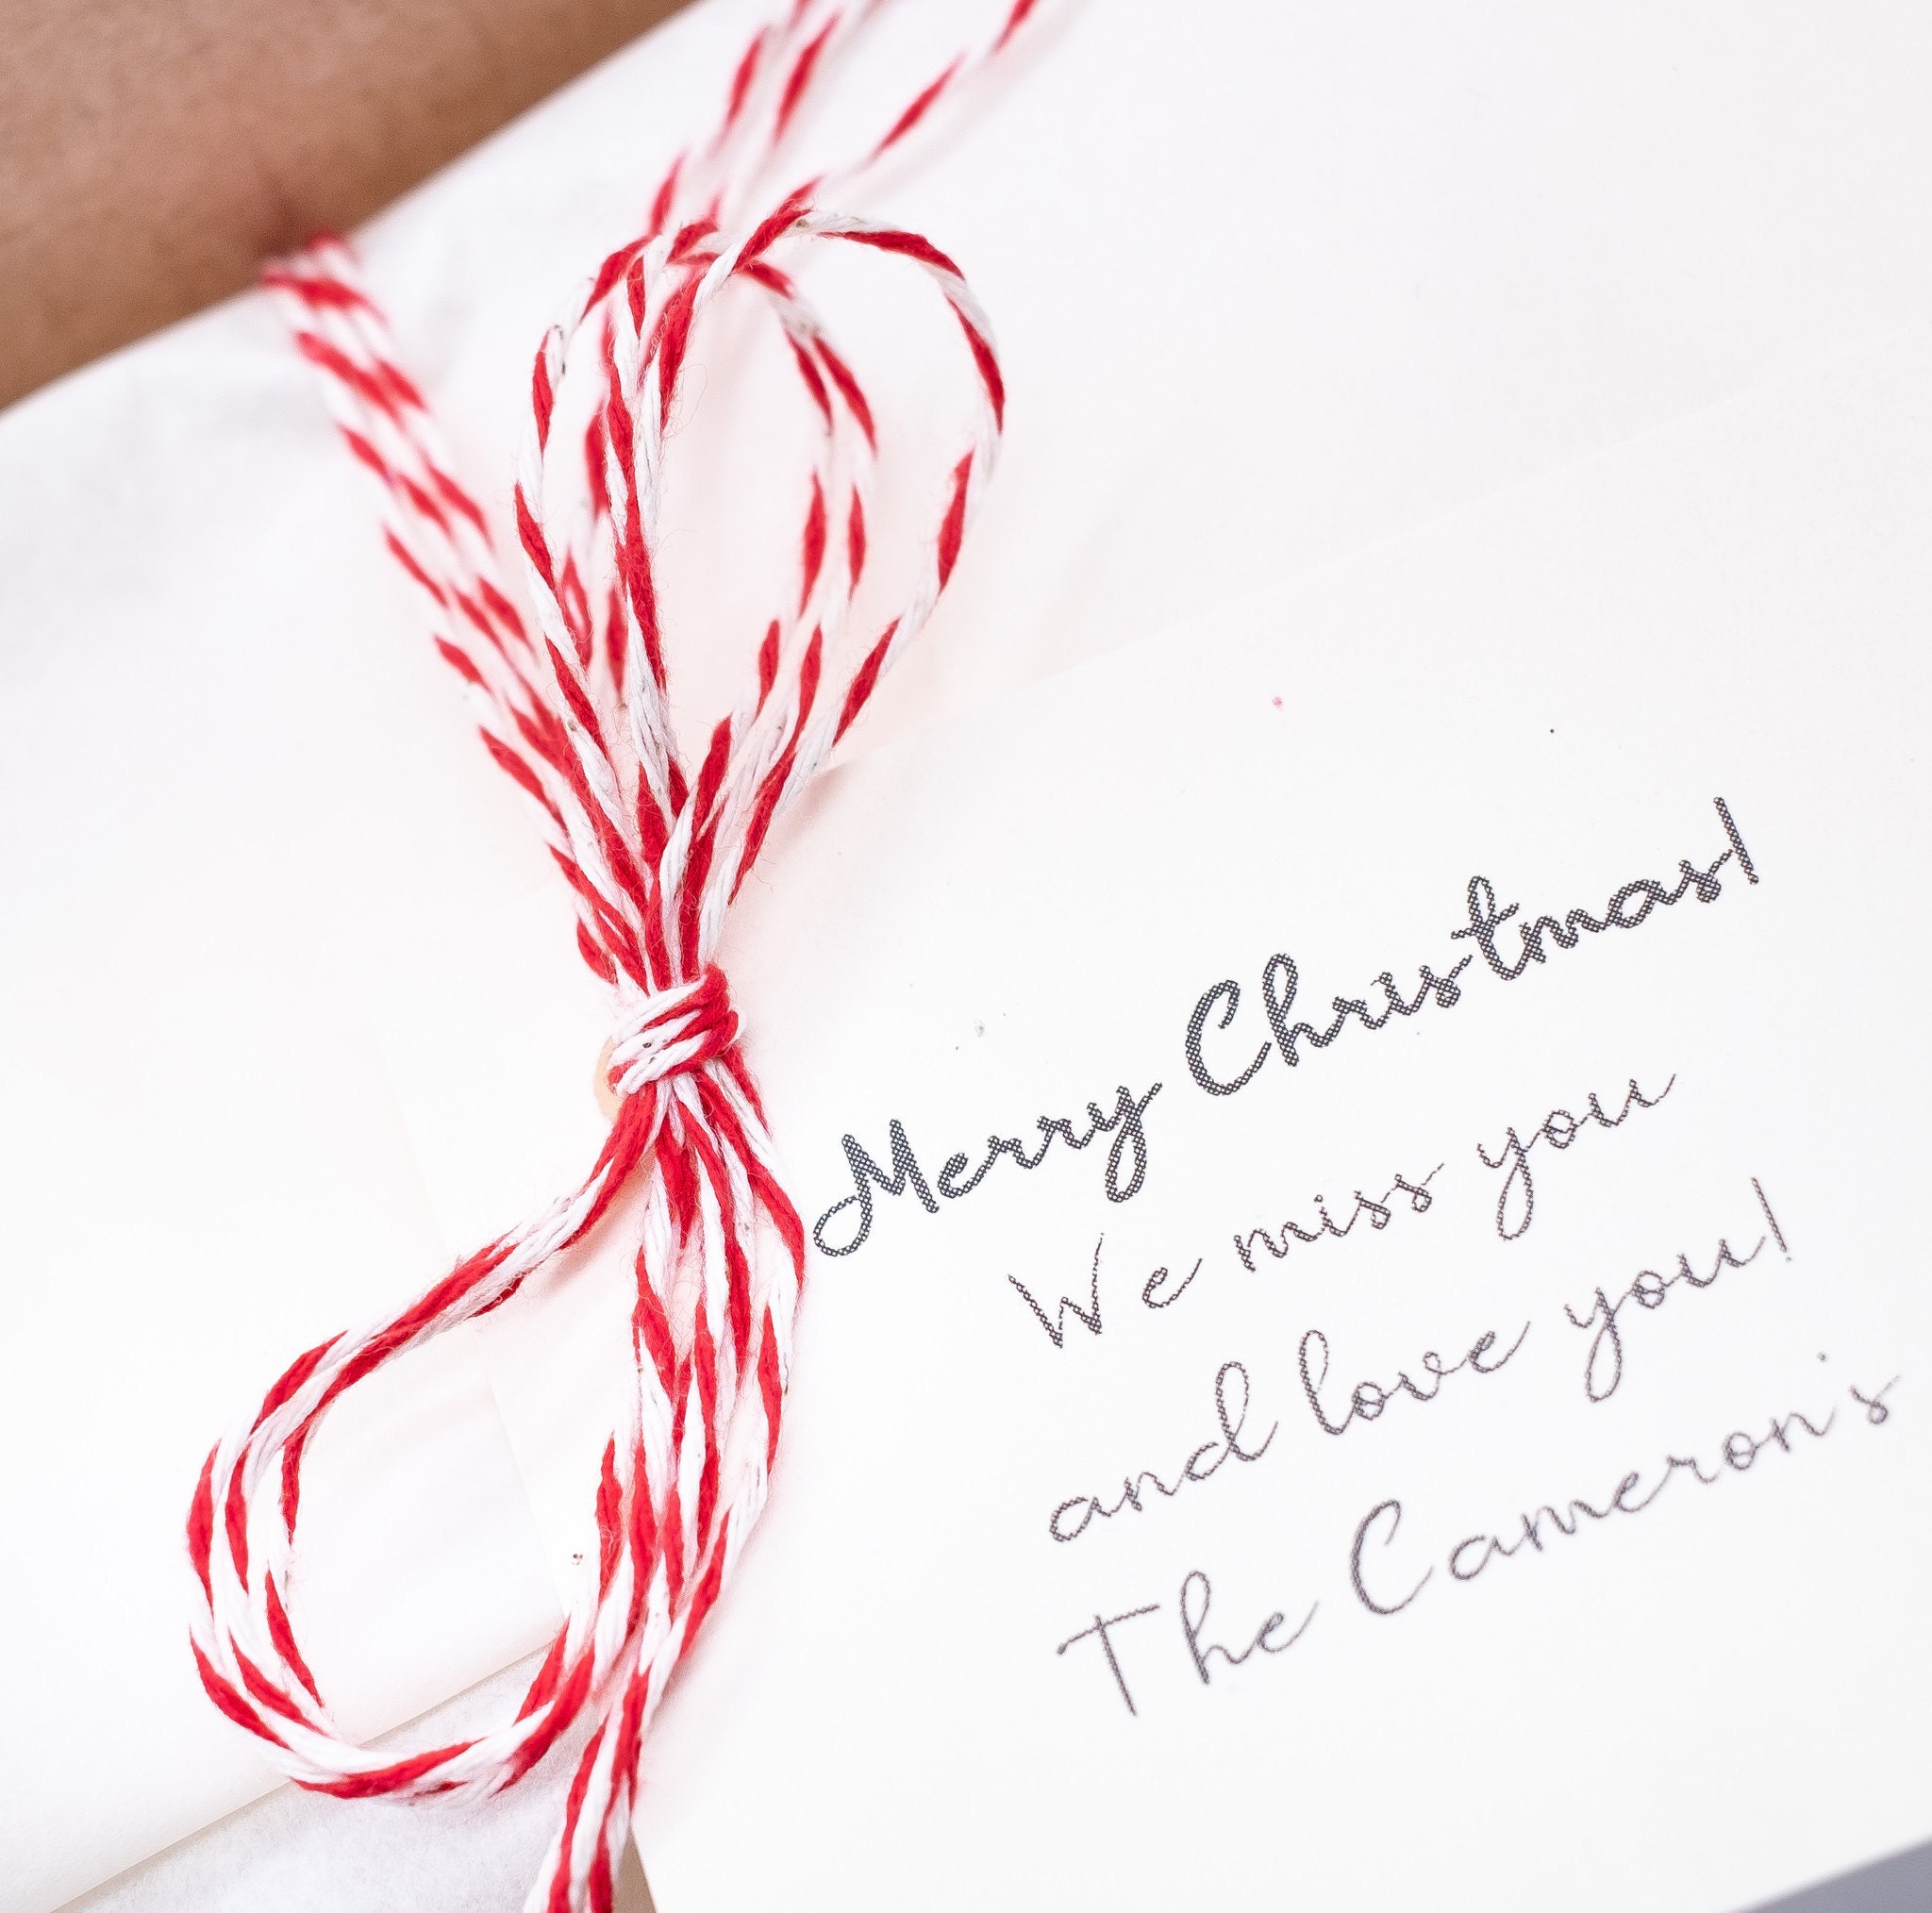 Merry Christmas!
We miss you
and love you!
The Cameron's